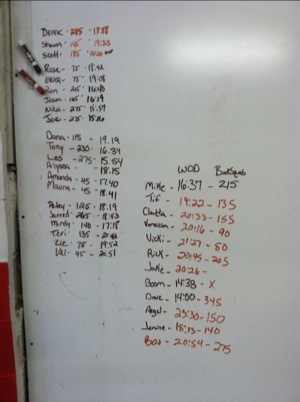 Derek - 285 - 17:58
Shawn - 115 - 19:33
Scott - 185 -
Rose - 75 - 18:42
Erica - 75 - 19:08
Ron - 25 - 16:40
Jason - 165 - 16:19
Nike - 275 - 15:57
Joe - 275 - 15:16
Dana - 115 - 19.19
Tony - 230 - 16.34
Les - 275 - 15.54
Alyssa - 18.15
Amanda - 45 - 17.40
Maura - 45 - 18.41
Patey - 125 - 18.19
Jarred - 265 - 18.43
Mindy - 140 - 17:18
Teri - 135 -
Liz - 75 - 19:52
Val - 45 - 20.51
WOD BackSquat
Mike - 16:37 - 215
Tif - 19:22 - 135
Claudia - 20:33 - 155
Vanessa - 20:16 - 90
Vicki - 21:27 - 80
Rick - 20:45 - 205
Jake - 20:26 -
Boom - 14:38 - X
Dave - 14:00 - 345
Angel - 23:30 - 150
Janine - 18:13 - 140
Bos - 20:54 - 275